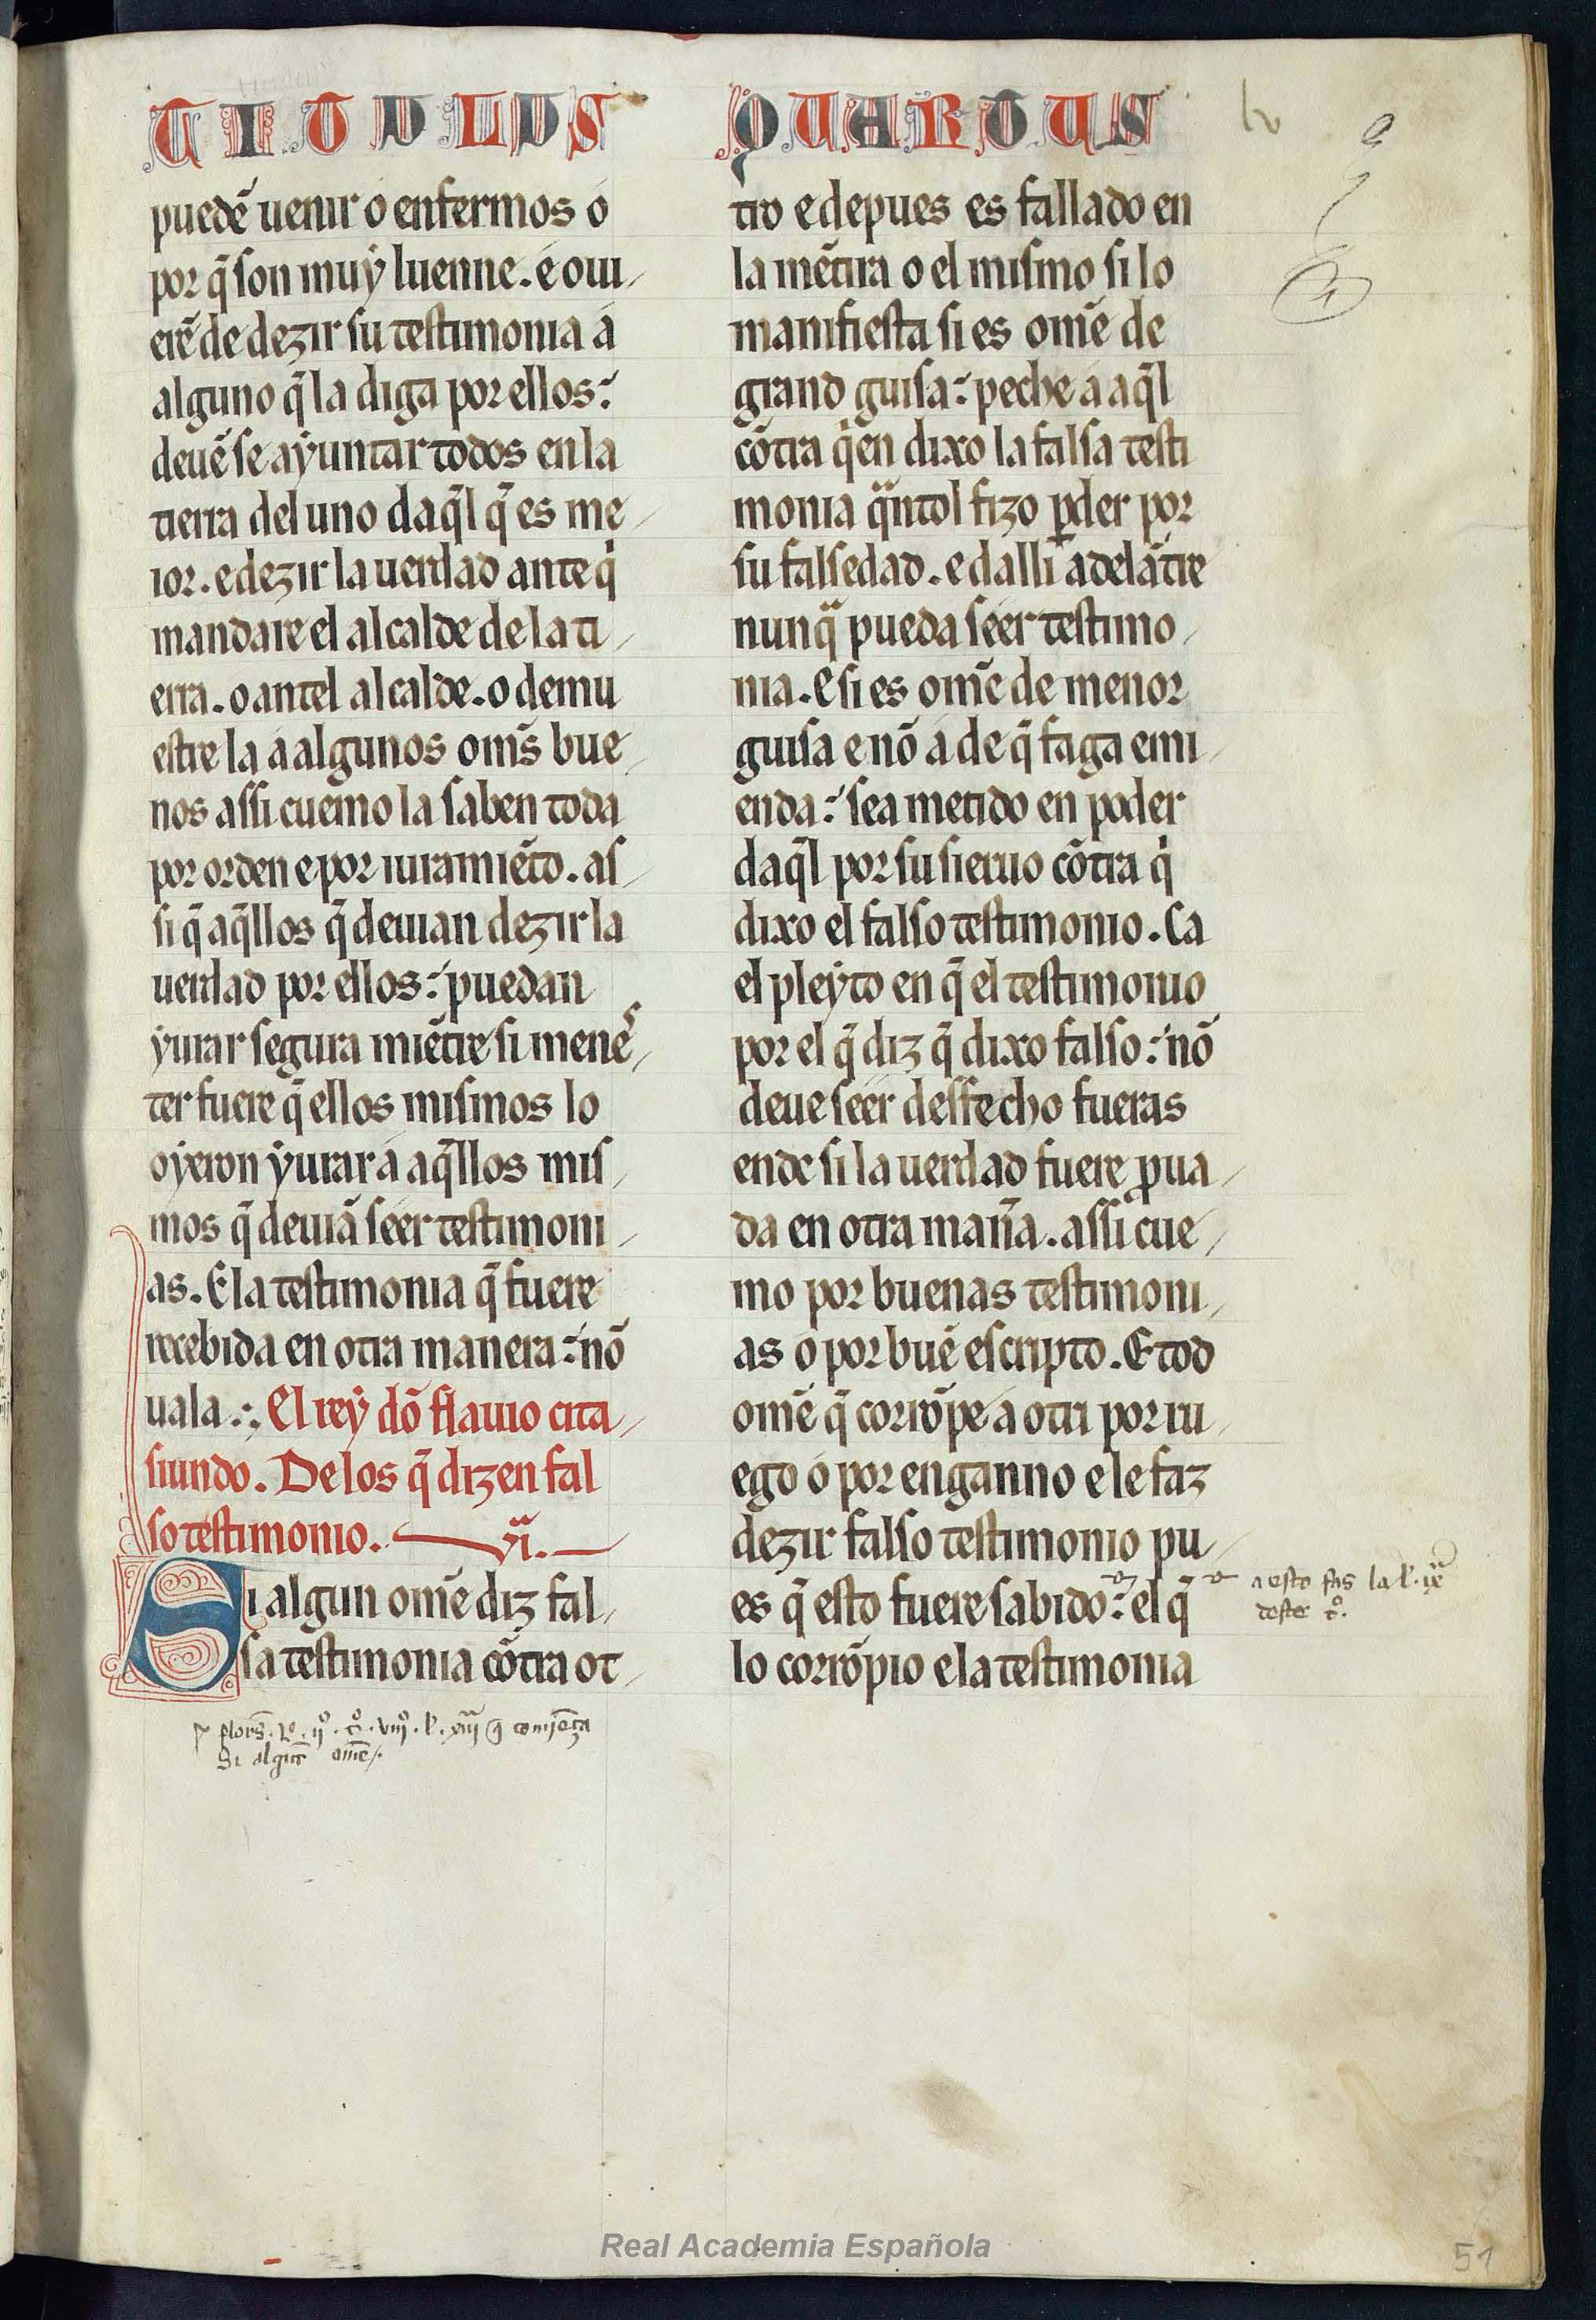 TITULUS QUARTUS
puedẽ uenir o enfermos o
por q̃ son muy luenne. e oui
erẽ de dezir su testimonia a
alguno q̃ la diga por ellos:
deuẽ se ayuntar todos en la
tierra del uno daq̃l q̃ es me
ior. e dezir la uerdad ante qͥ
mandare el alcalde de la ti
erra. o antel alcalde. o demu
estre la a algunos om̃s bue
nos assi cuemo la saben toda
por orden e por iuramiẽto. as
si q̃ aq̃llos q̃ deuian dezir la
uerdad por ellos: puedan
yurar segura miẽtre si menes
ter fuere q̃ ellos mismos lo
oyeron yurar a aq̃llos mis
mos q̃ deuiã seer testimoni
as. E la testimonia q̃ fuere
recebida en otra manera: nõ
uala.:. El rey dõ flauio cita
siundo. De los q̃ dizen fal
so testimonio. vi.
Si algun om̃e diz fal
sa testimonia cõtra ot
tro e depues es fallado en
la mẽtira o el mismo si lo
manifiesta si es om̃e de
grand guisa: peche a aq̃l
cõtra qͥen dixo la falsa testi
monia qͣntol fizo ꝑder por
su falsedad. e dalli adelãtre
nunqͣ pueda seer testimo
nia. E si es om̃e de menor
guisa e nõ a de q̃ faga emi
enda: sea metido en poder
daq̃l por su sieruo cõtra qͥ
dixo el falso testimonio. Ca
el pleyto en q̃ el testimonio
por el q̃ diz q̃ dixo falso: nõ
deue seer desfecho fueras
ende si la uerdad fuere ꝓua
da en otra man̄a. assi cue
mo por buenas testimoni
as o por buẽ escripto. E tod
om̃e q̃ corrõpe a otri por ru
ego o por enganno e le faz
dezir falso testimonio pu
es q̃ esto fuere sabido: el q̃
lo corrõpio e la testimonia
a esto fas la l. ix
deste tº.
si algũt om̃e
51
Real Academia Española